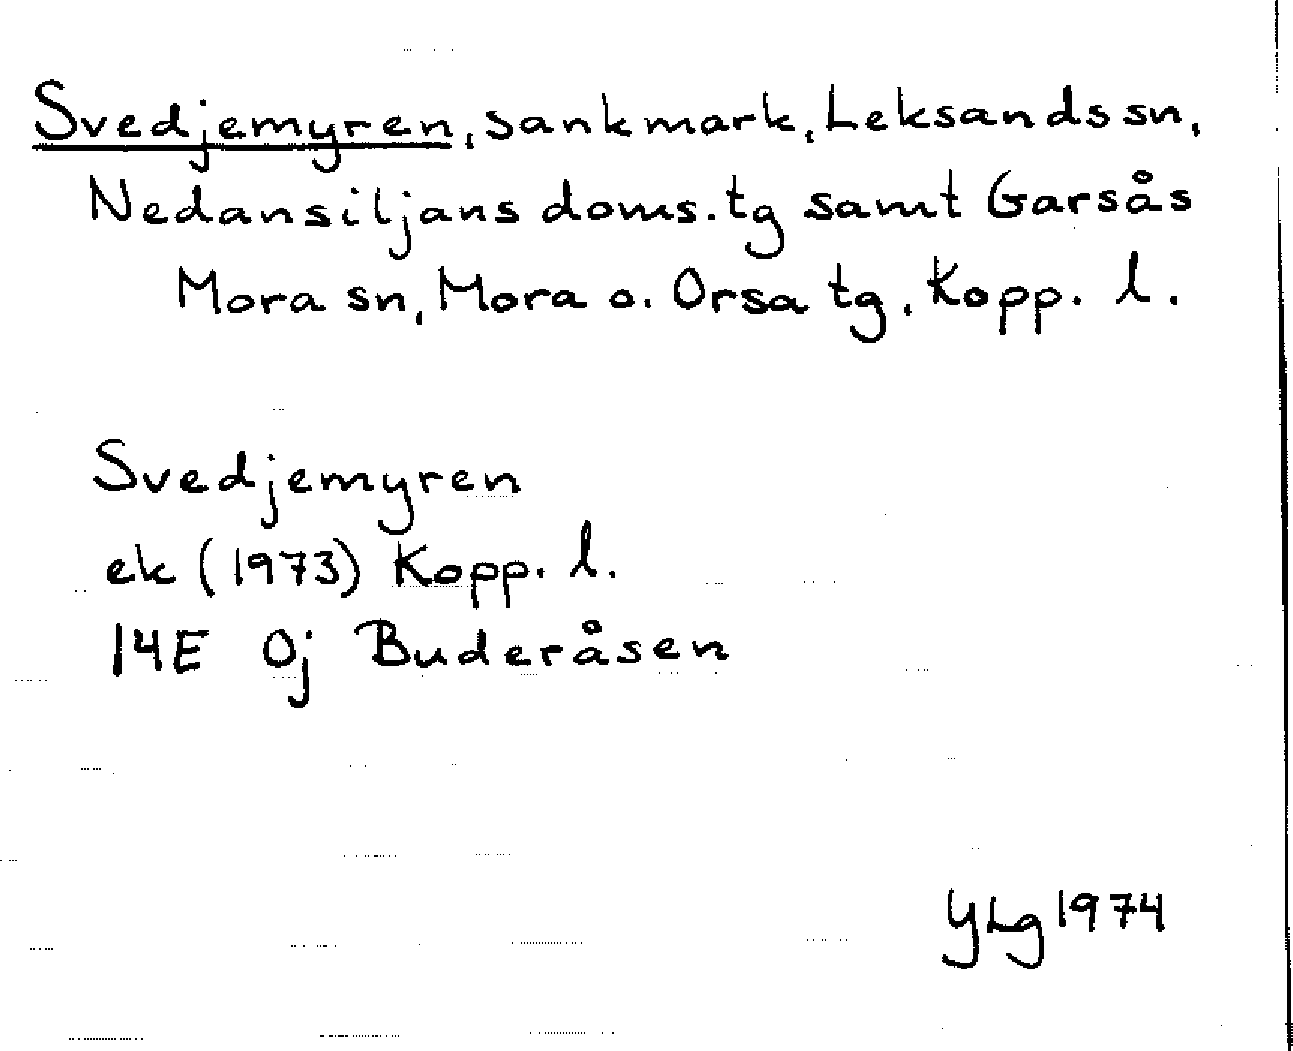 Svedjemyren, sankmark, Leksands sn,
Nedansiljans doms.tg samt Garsås
Mora sn, Mora o. Orsa tg, Kopp. l.
Svedjemyren
ek (1973) Kopp. l.
14E 0j Buderåsen
YLg 1974